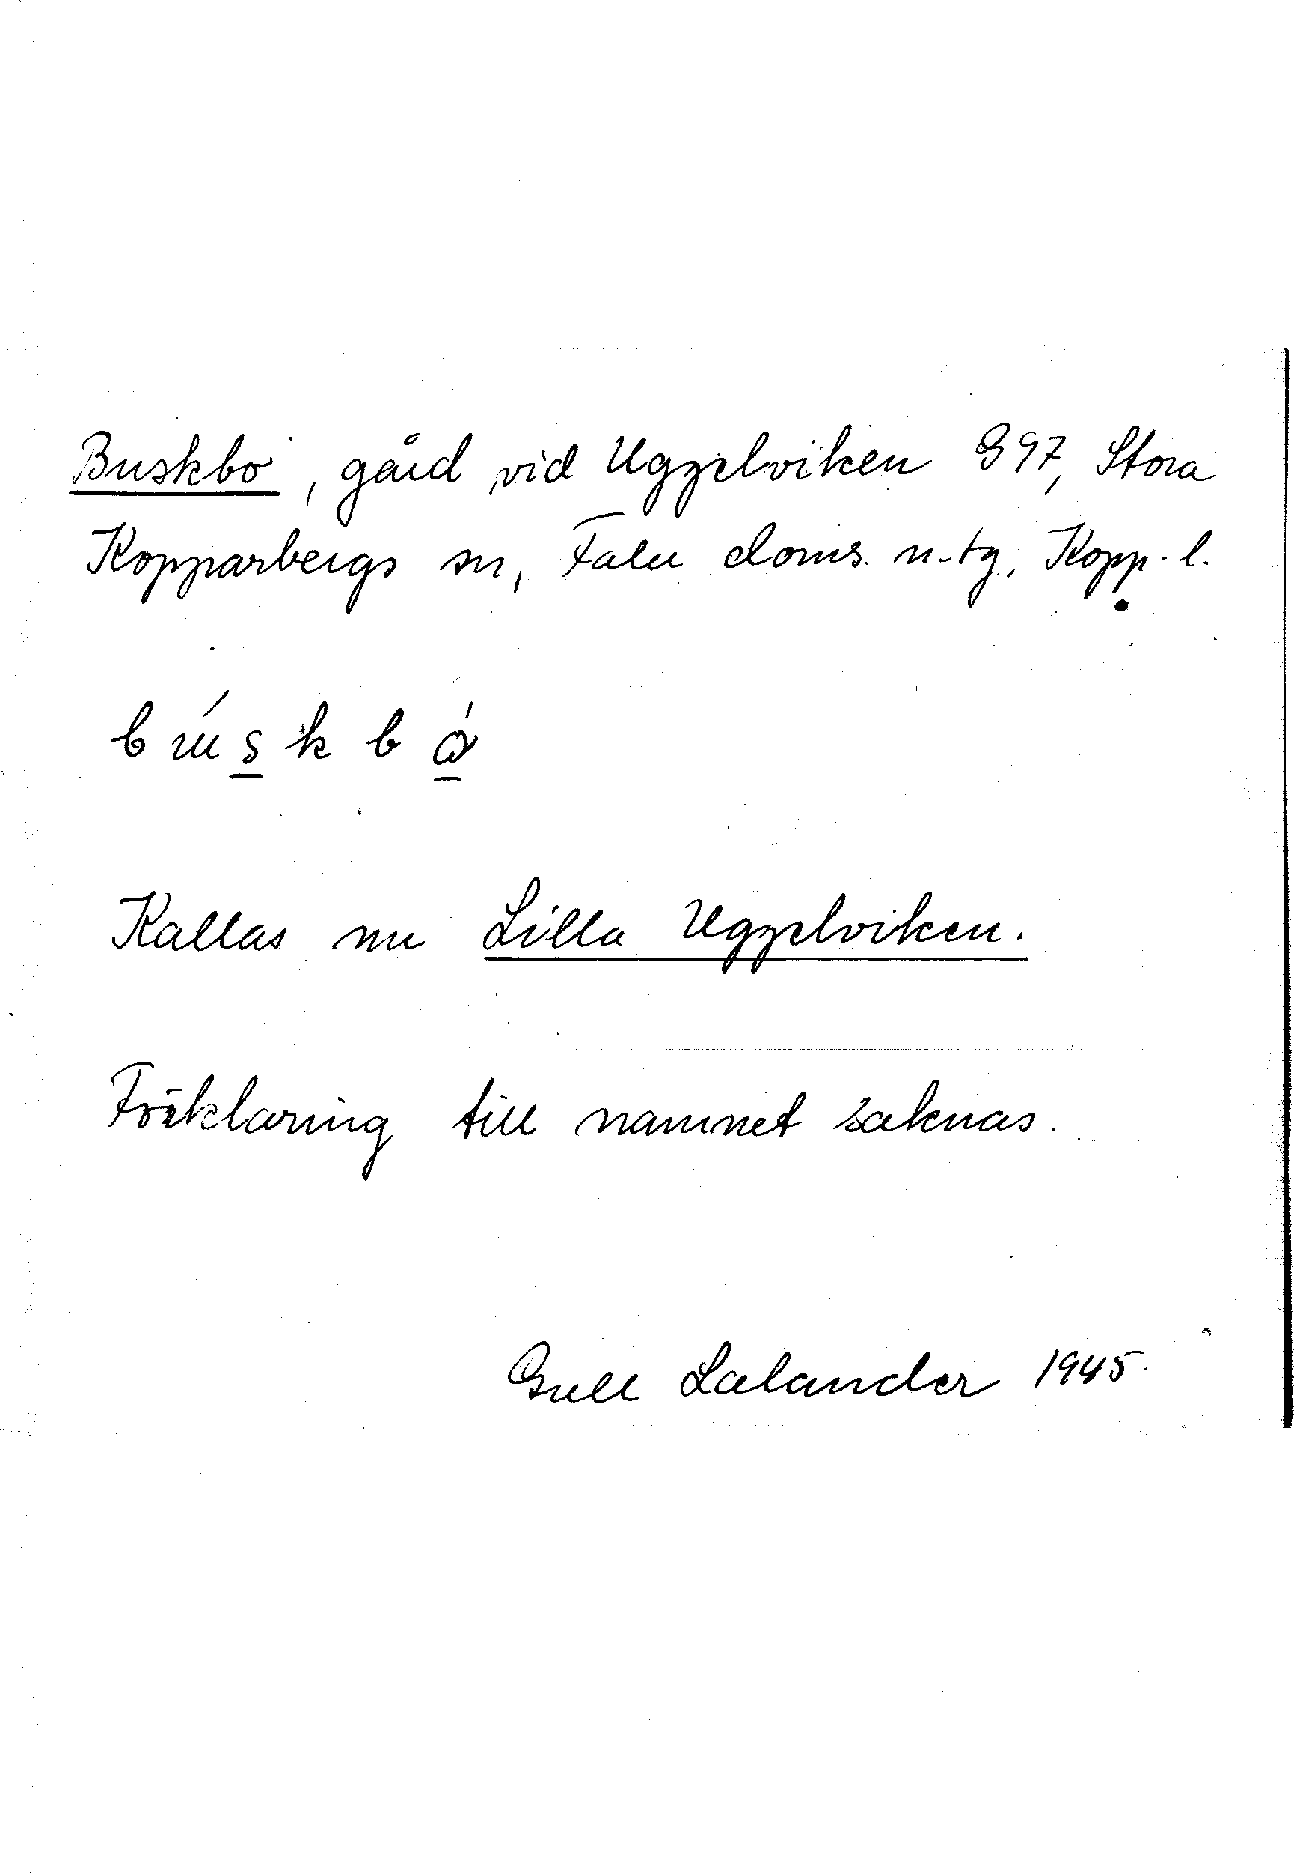 Buskbo, gård vid Uggelviken G97, Stora
Kopparbergs sn, Falu doms. n-tg, Kopp. l.
Kallas nu Lilla Uggelviken.
Förklaring till namnet saknas.
Gull Lalander 1945.